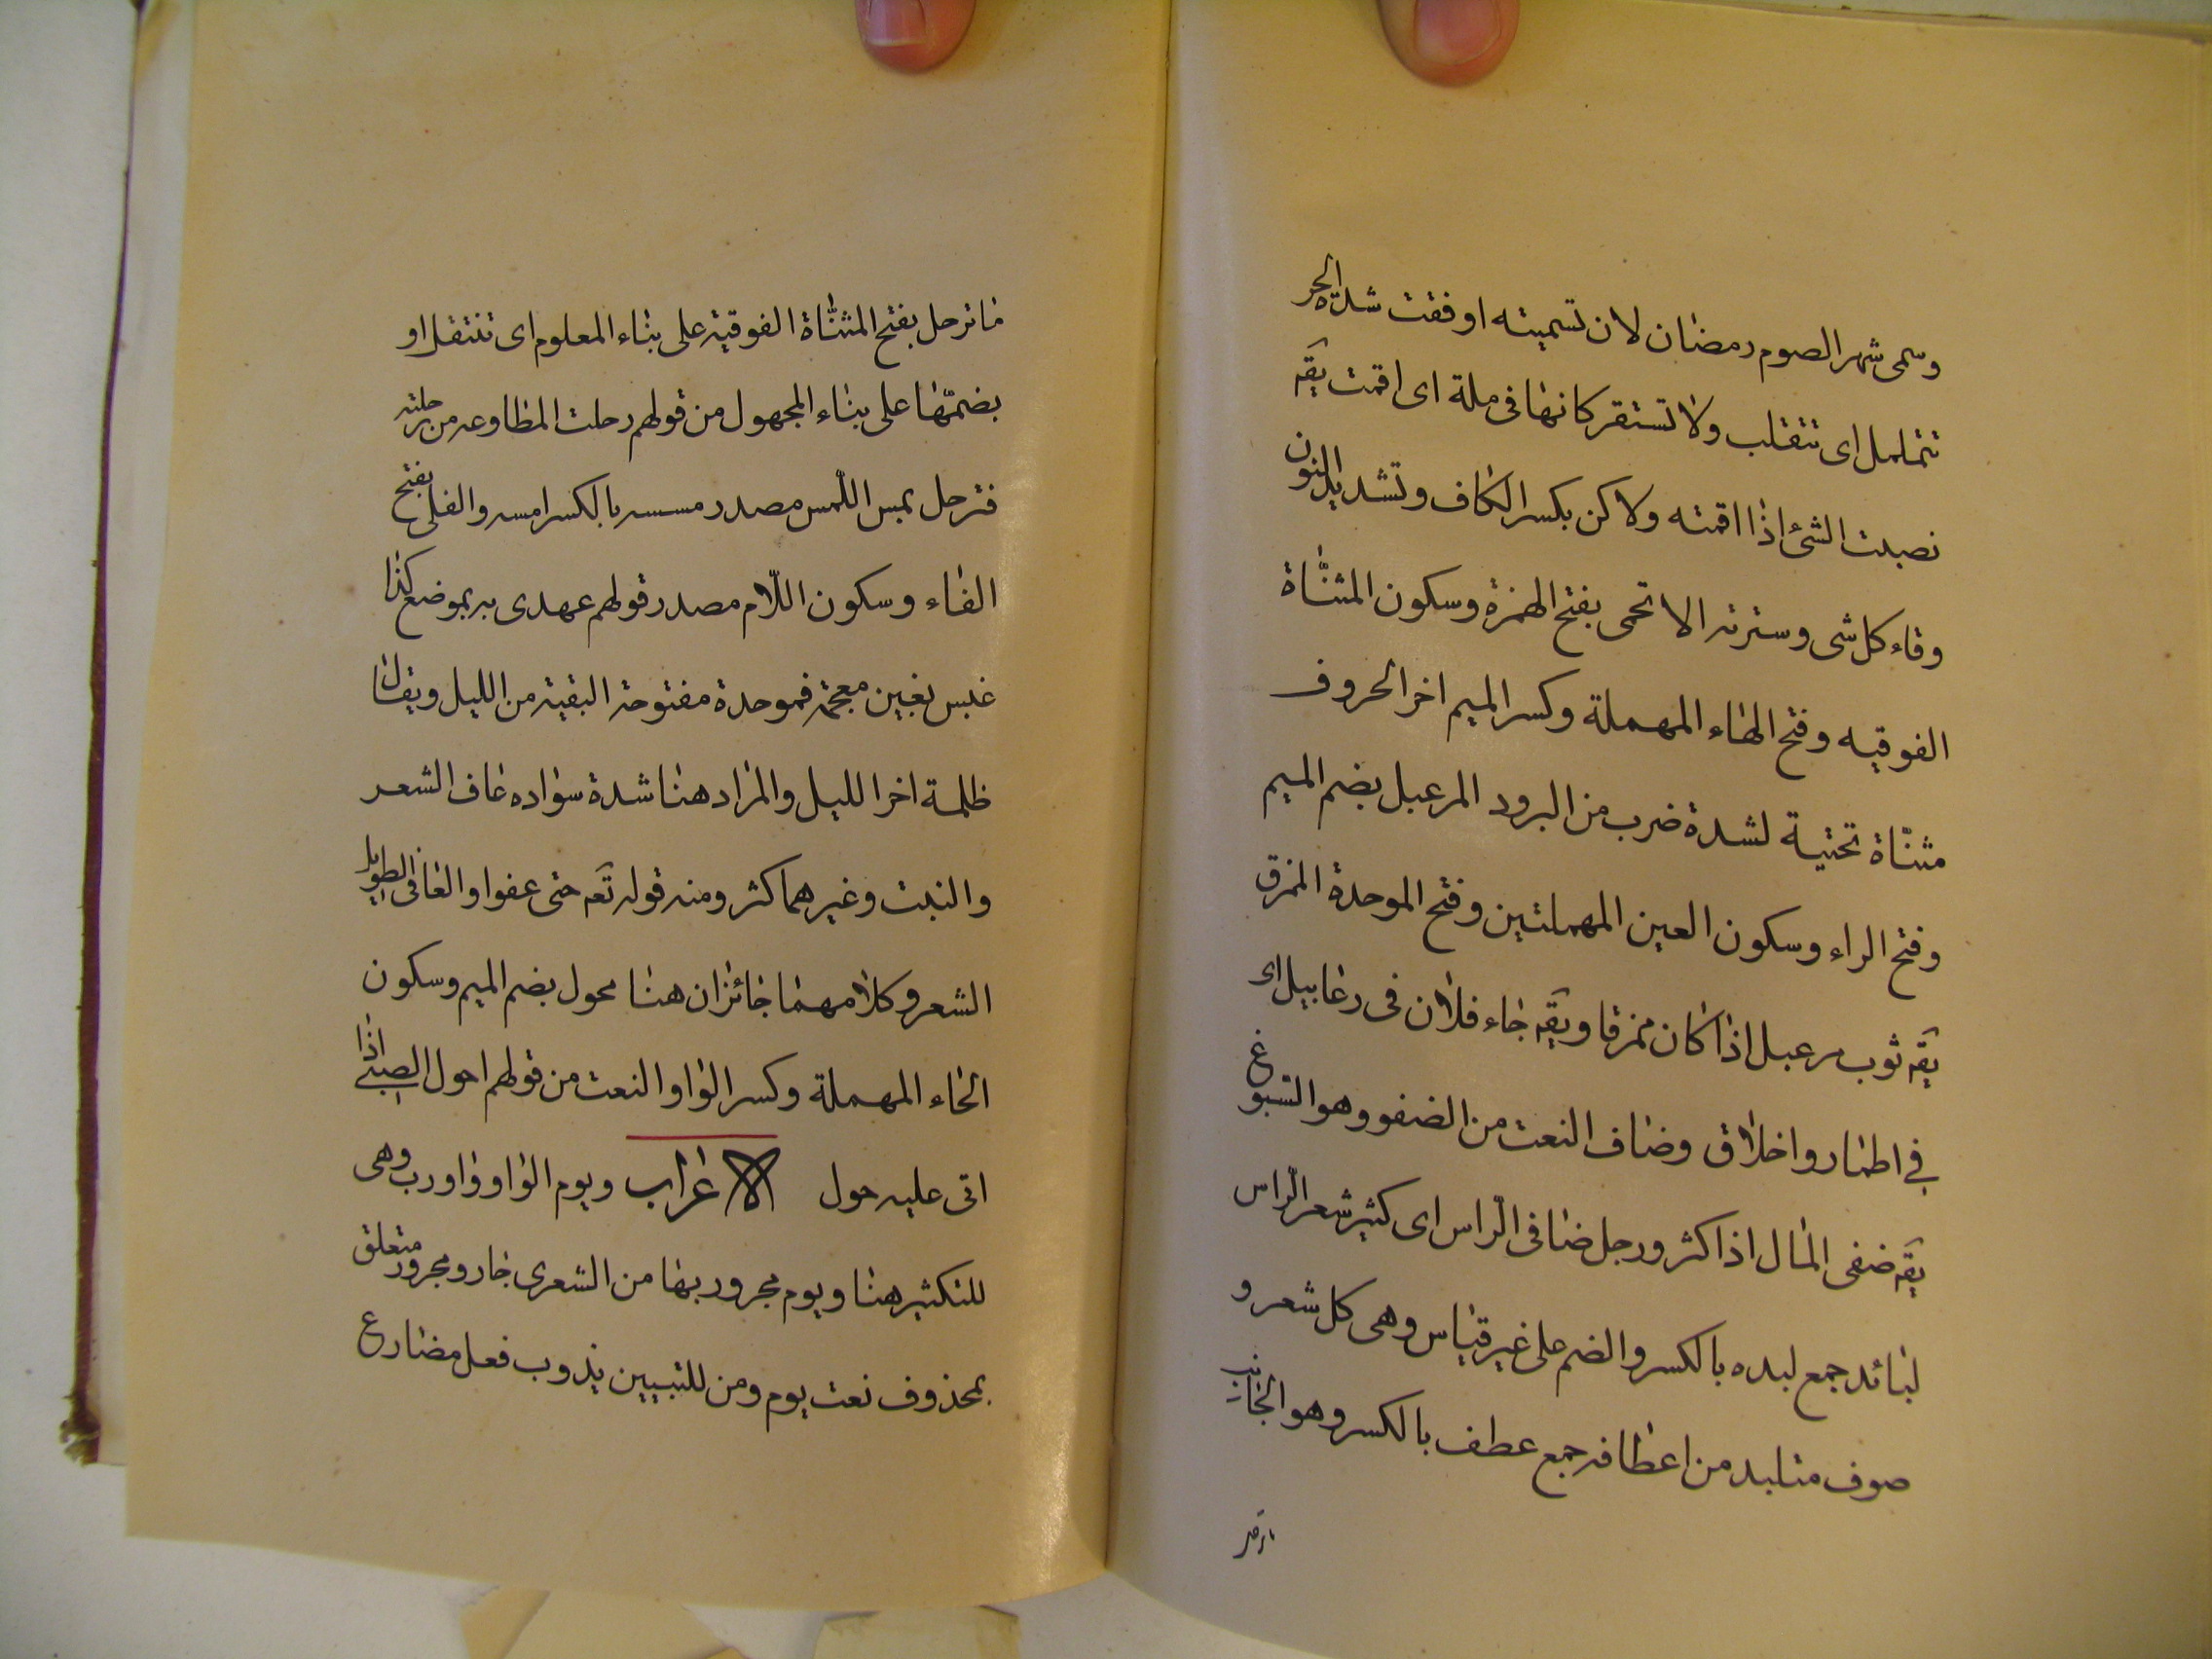 وسمى شهر الصوم رمضان لان تسميته اوفقت شدة الحر
تتململ اى تتقلب ولا تستقر كانها فى ملة اى اقمت يقه
نصبت الشئ اذا اقمته ولاكن بكسر الكاف وتشديد النون
وقاء كل شى وسترته الاتحمى بفتح الهمزة وسكون المثناة
الفوقيه وفتح الهاء المهملة وكسر الميم اخر الحروف
مثناة تحتية لشدة ضرب من البرود المرعبل بضم الميم
وفتح الراء وسكون العين المهملتين وفتح الموحدة الممزق
يقه ثوب مرعبل اذا كان ممزقا ويقه جاء فلان فى رعابيل اى
فى اطمار واخلاق وضاف النعت من الضفو وهو السبوغ
يقه ضفى المال اذا كثر ورجل ضافى الراس اى كثير شعر الراس
لبائد جمع لبده بالكسر والضم على غير قياس وهى كل شعر و
صوف متلبد من اعطافه جمع عطف بالكسر وهو الجانب
ما ترحل بفتح المثناة الفوقية على بناء المعلوم اى تنتقل او
بضمها على بناء المجهول من قولهم رحلت المطاوعه من رحلته
فترحل بمس اللمس مصدر مسسه بالكسر امسه والفلى بفتح
الفاء وسكون اللام مصدر قولهم عهدى به بموضع كذا
غبس بغين معجمة فموحدة مفتوحة البقية من الليل ويقال
ظلمة اخر الليل والمراد هنا شدة سواده عاف الشعر
والنبت وغيرهما كثر ومنه قوله تعه حتى عفوا والعافى الطويل
الشعر وكلامهما جائزان هنا محول بضم الميم وسكون
الحاء المهملة وكسر الواو النعت من قولهم احول الصبى اذا
اتى عليه حول الاعراب ويوم الواو واو رب وهى
للتكثير هنا ويوم مجرور بها من الشعرى جار ومجرور متعلق
بمحذوف نعت يوم ومن للتبيين يذوب فعل مضارع